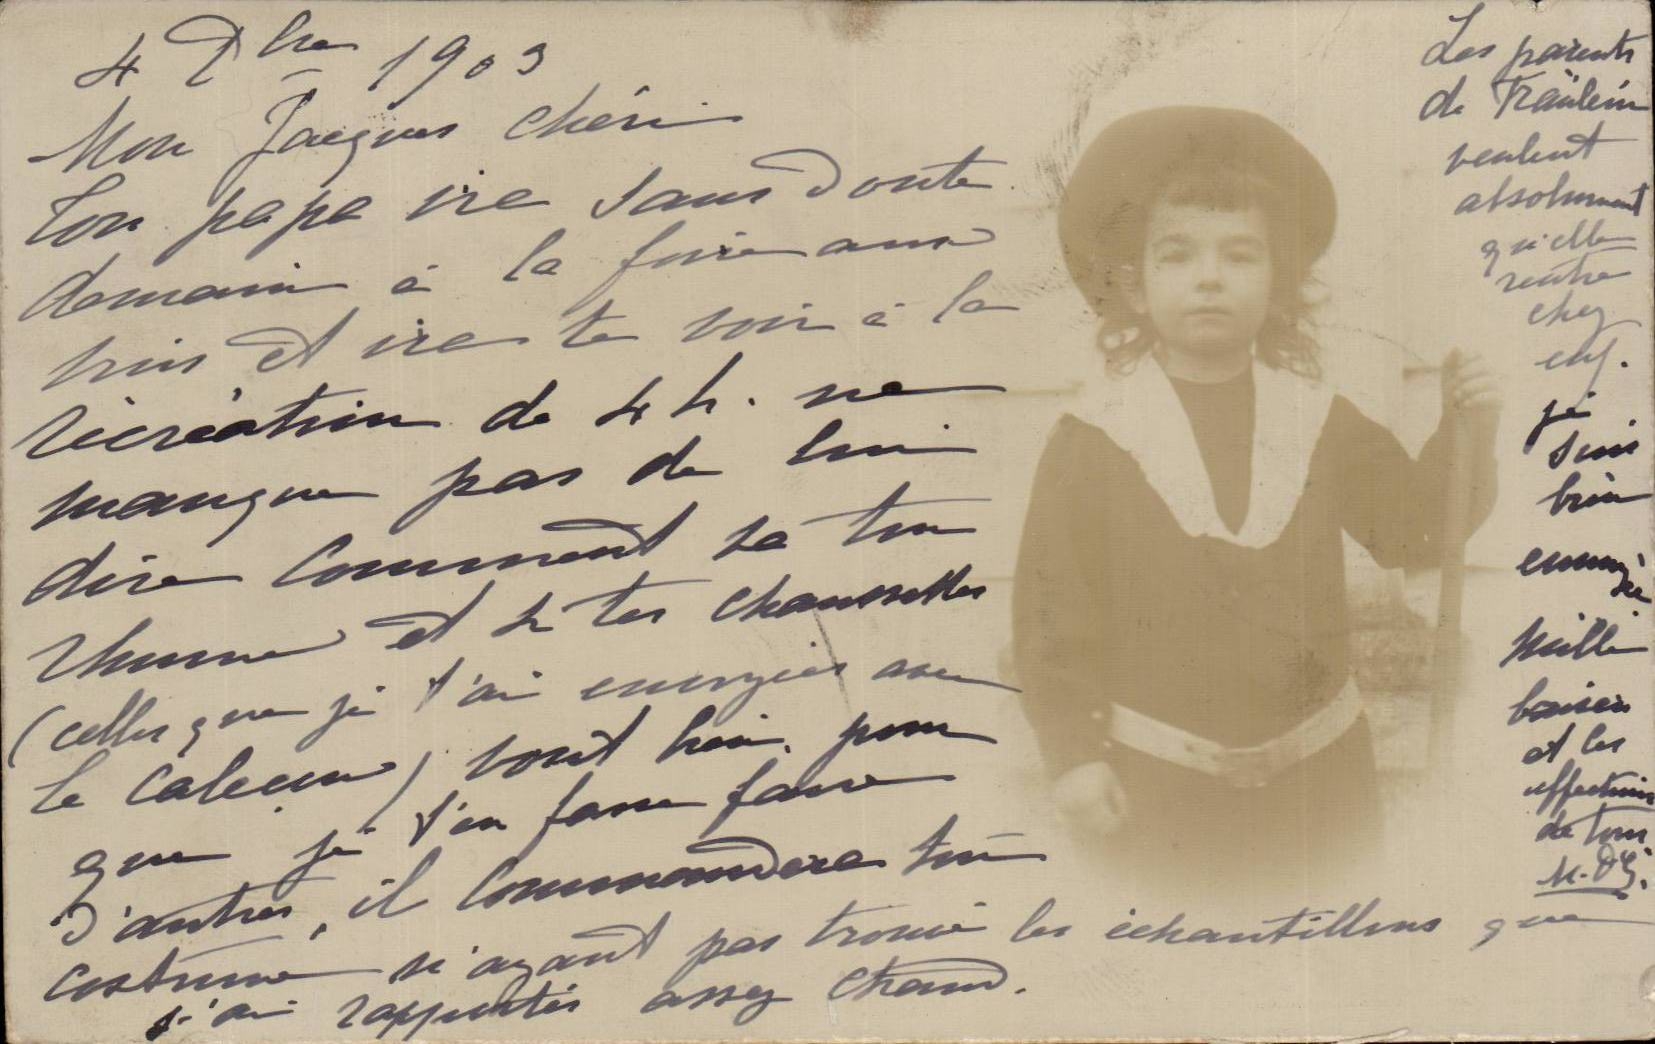 4 Xbre 1903
Mon Jacques chéri
Ton papa ira sans doute
demain à la foire aux
vins et ira te voir à la
récréation de 4 h. ne
manque pas de lui
dire comment va ton
rhume et si tes chaussettes
(celles que je t'ai envoyées avec
le caleçon) vont bien. pour
que je t'en fasse faire
d'autres, il commandera ton
costume n'ayant pas trouvé les échantillons que
j'ai rapportés assez chaud.
Les parents
de Fräulein
veulent
absolument
qu'elle
rentre
chez
eux.
je
suis
bien
ennuyée
Mille
baisers
et les
affections
de tous